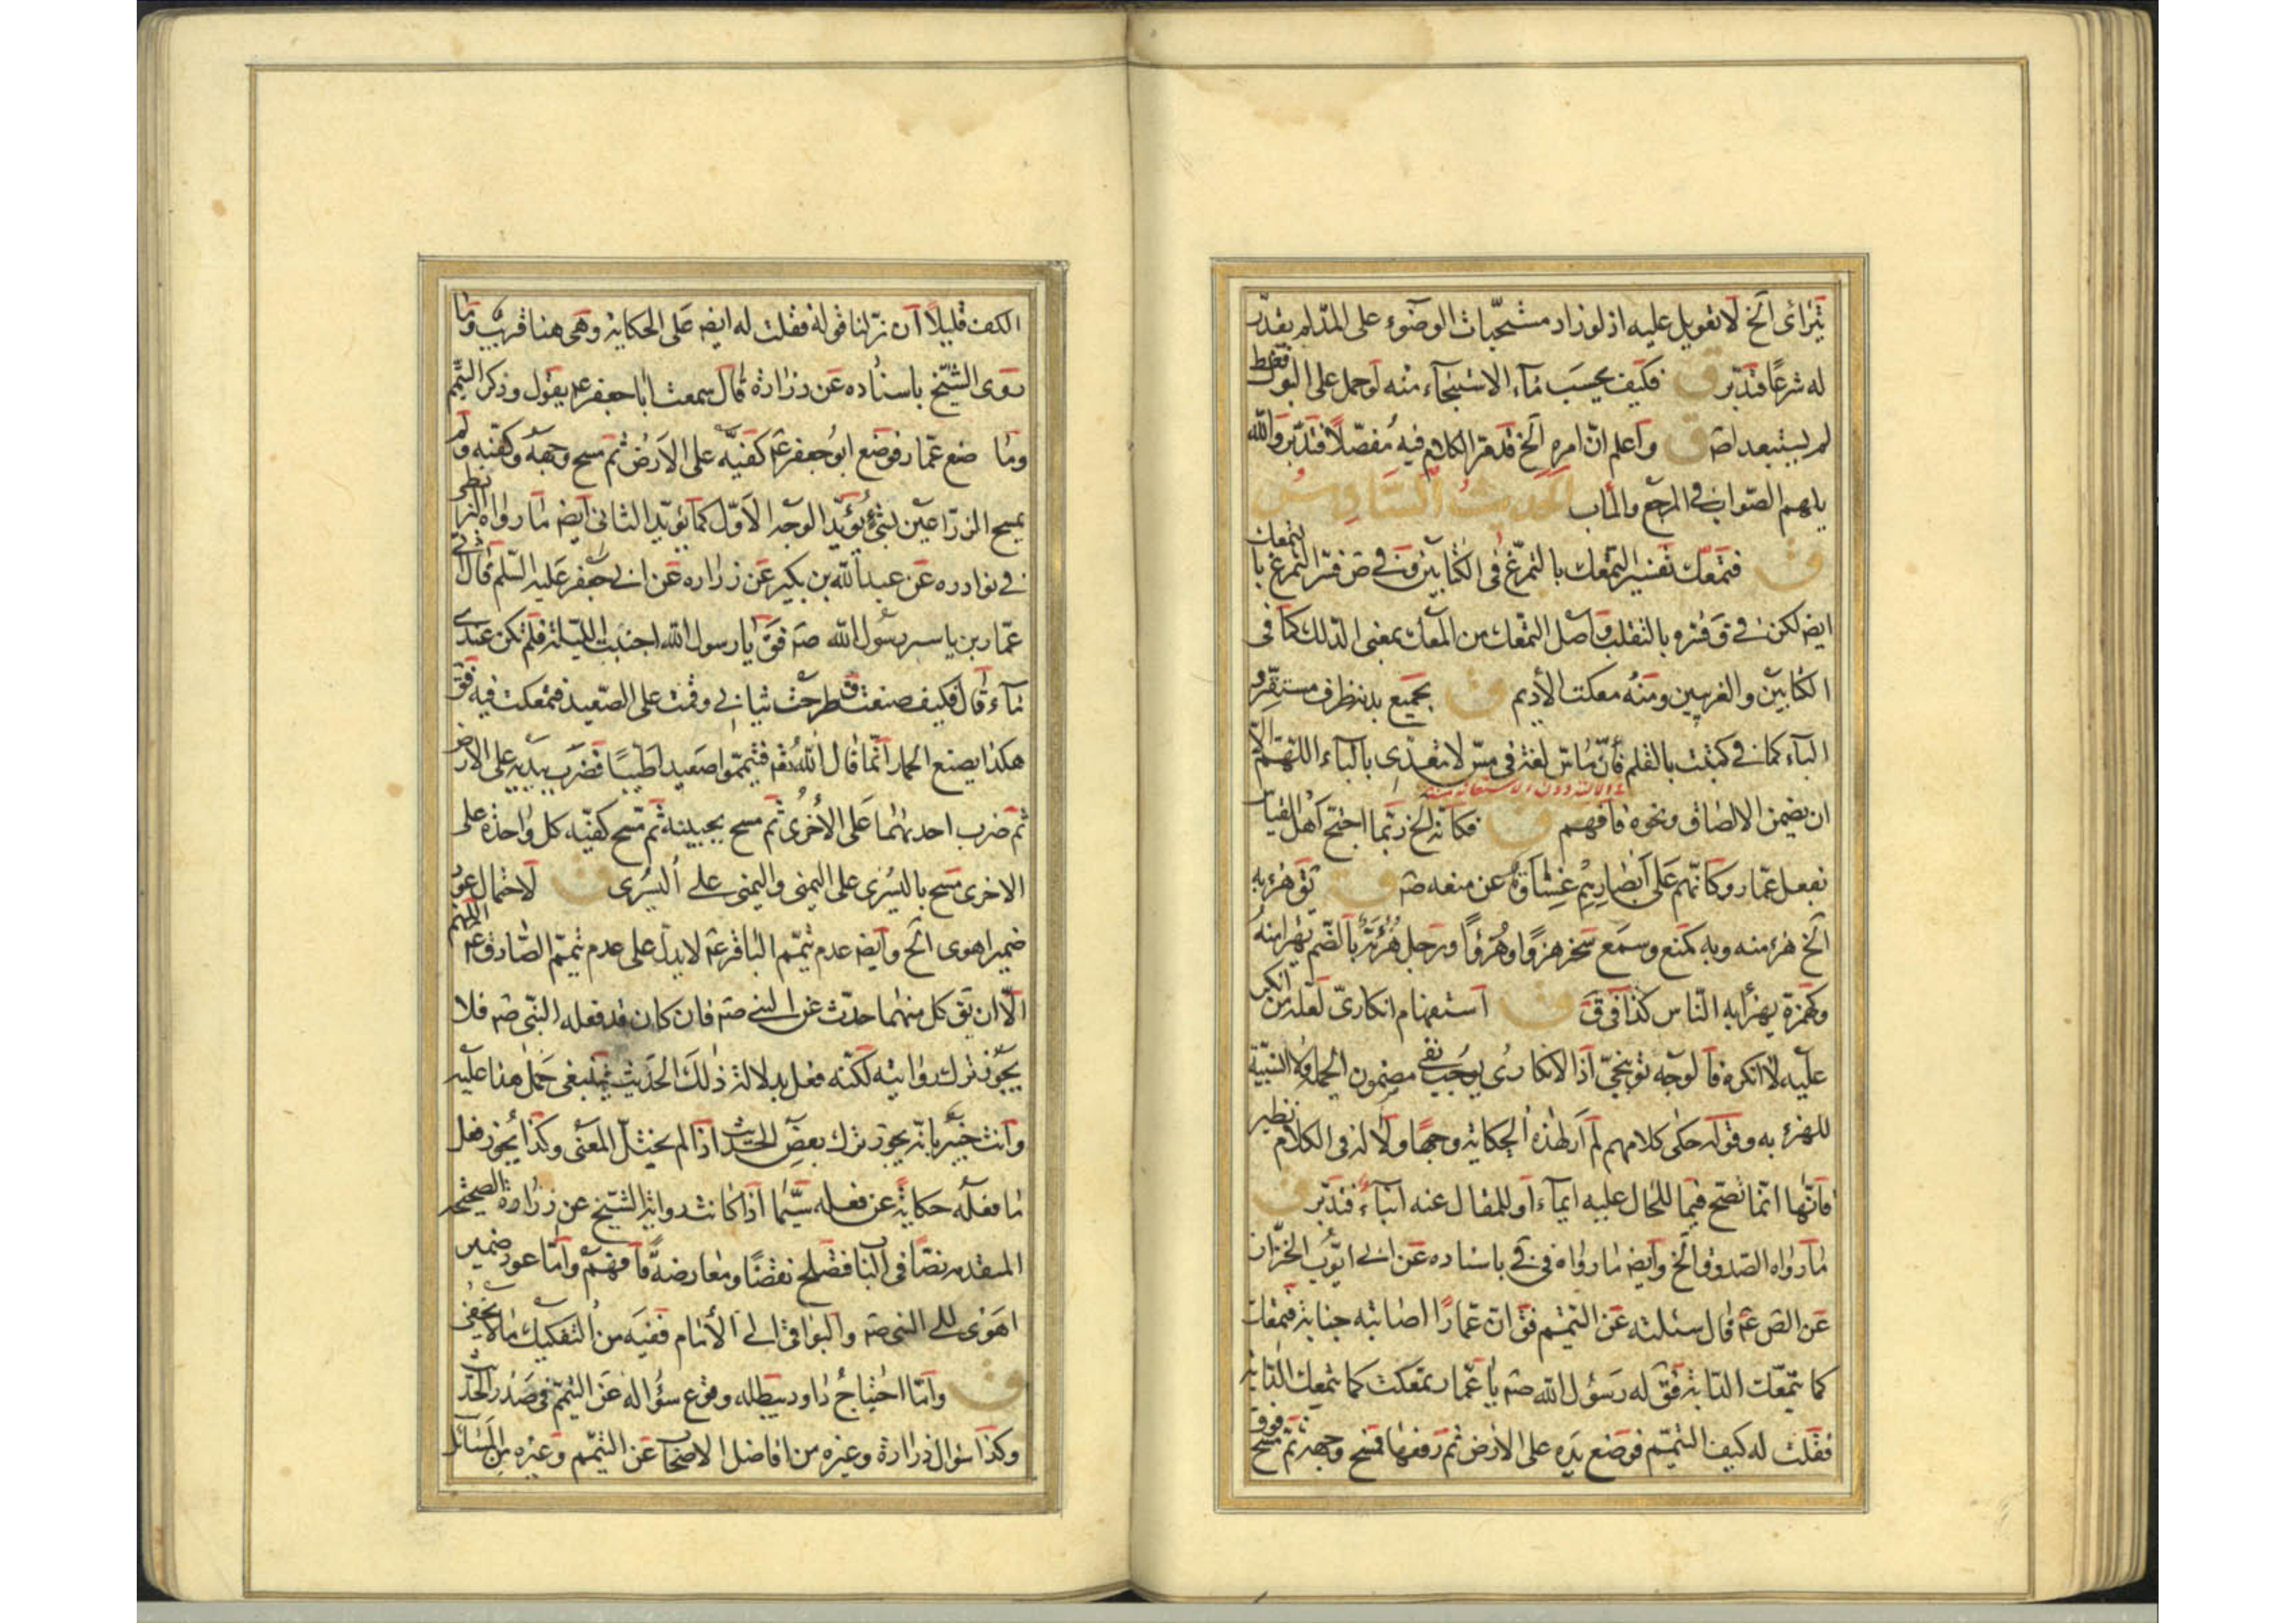 يتراءى الخ لا تعويل عليه اذ لو زاد مستحبات الوضوء على المد لم يقدر
له شرعًا فتدبر ق فكيف يحسب ماء الاستنجاء منه لو حمل على البول فقط
لم يستبعد اصَ ق واعلم ان امره الخ قد مر الكلام فيه مفصّلًا فتدبر والله
يلهم الصواب في المرجع والمآب الحديث السادس
ق فتمعك تفسير التمعك بالتمرغ في الكتابين وفي ص فسر التمرغ بالتمعك
ايضَ لكن في ق فسره بالتقلب واصل التمعك من المعك بمعنى الدلك كما في
الكتابين والغريبين ومنه معكت الأديم ق بجميع بدنه ظرف مستقر و
الباء كما في كتبت بالقلم فأن ماس لغة في مس لا تتعدى بالباء اللهم الا
ء الالة دون الاستعانة منه
ان يضمن الالصاق ونحوه فافهم ق فكانه الخ ربما احتج اهل القياس
بفعل عمار وكأنهم على أبصارهم غشاوة عن منعه صَ ق تقَ هزء به
الخ هزء منه وبه كمنع وسمع سخر هزءًا وهزؤًا ورجل هزأة بالضم يهزأ منه
وكهمزة يهزأ به الناس كذا في قَ ق استفهام انكاري لعله من انكر
عليه لا انكره فالوجه توبيخي اذ الانكاري يوجب نفي مضمون الجملة ولا النسبة
للهزء به وقوله حكى كلامهم لم أر لهذه الحكاية وجهًا ولا له في الكلام نظير
فانها انما تصح فيما للحال عليه ايماء او للمقال عنه انباء فتدبر ق
ما رواه الصدوق الخ وايضَ ما رواه في في باسناده عن ابي ايوب الخزاز
عن الصَ عَ قال سئلته عن التيمم فقَ ان عمارًا اصابته جنابة فتمعك
كما يتمعك الدابة فقَ له رسول الله صَ يا عمار تمعكت كما تتمعك الدابة
فقلت له كيف التيمم فوضع يده على الارض ثم رفعها فمسح وجهه ثم مسح فوق
الكف قليلًا ان نزلنا قوله فقلت له ايضَ على الحكاية وهي هنا قريب وما
روى الشيخ باسناده عن زرارة قال سمعت ابا جعفر عَ يقول وذكر التيمم
وما صنع عمار فوضع ابو جعفر عَ كفيه على الارض ثم مسح وجهه وكفيه ولم
يمسح الذراعين بشيء يؤيد الوجه الاول كما يؤيد الثاني ايضَ ما رواه البزنطي
في نوادره عن عبد الله بن بكير عن زرارة عن ابي جعفر عليه السلم قال اتى
عمار بن ياسر رسول الله صَ فقَ يا رسول الله اجنبت الليلة فلم تكن عندي
ماء قال فكيف صنعت قَ طرحت ثيابي وقمت على الصعيد فتمعكت فيه فقَ
هكذا يصنع الحمار انما قال الله تعَ فتيمموا صعيدا طيبًا فضرب بيديه على الارض
ثم ضرب احديهما على الأخرى ثم مسح بجبينه ثم مسح كفيه كل واحدة على
الاخرى مسح باليسرى على اليمنى واليمنى على اليسرى ق لاحتمال عود
ضمير اهوى الخ وايضَ عدم تيمم الباقر عَ لا يدل على عدم تيمم الصادق عَ اللهم
الا ان تقَ كل منهما حدث عن النبي صَ فان كان قد فعله النبي صَ فلا
يجوز ترك روايته لكنه فعل بدلالة ذلك الحديث فينبغي حمل هذا عليه
وانت خبير بانه يجوز ترك بعض الحديث اذا لم يختل المعنى وكذا يجوز فعل
ما فعله حكاية عن فعله سيما اذا كانت رواية الشيخ عن زرارة الصحيحة
المتقدمة نصًا في الباب فتصلح نقضًا ومعارضة فافهم واما عود ضمير
اهوى الى النبي صَ والبواقي الى الأمام ففيه من التفكيك ما لا يخفى
ق واما احتياج داود يبطله وقوع سؤاله عن التيمم في صدر الحديث
وكذا سؤال زرارة وغيره من افاضل الاصحاب عن التيمم وغيره من المسائل